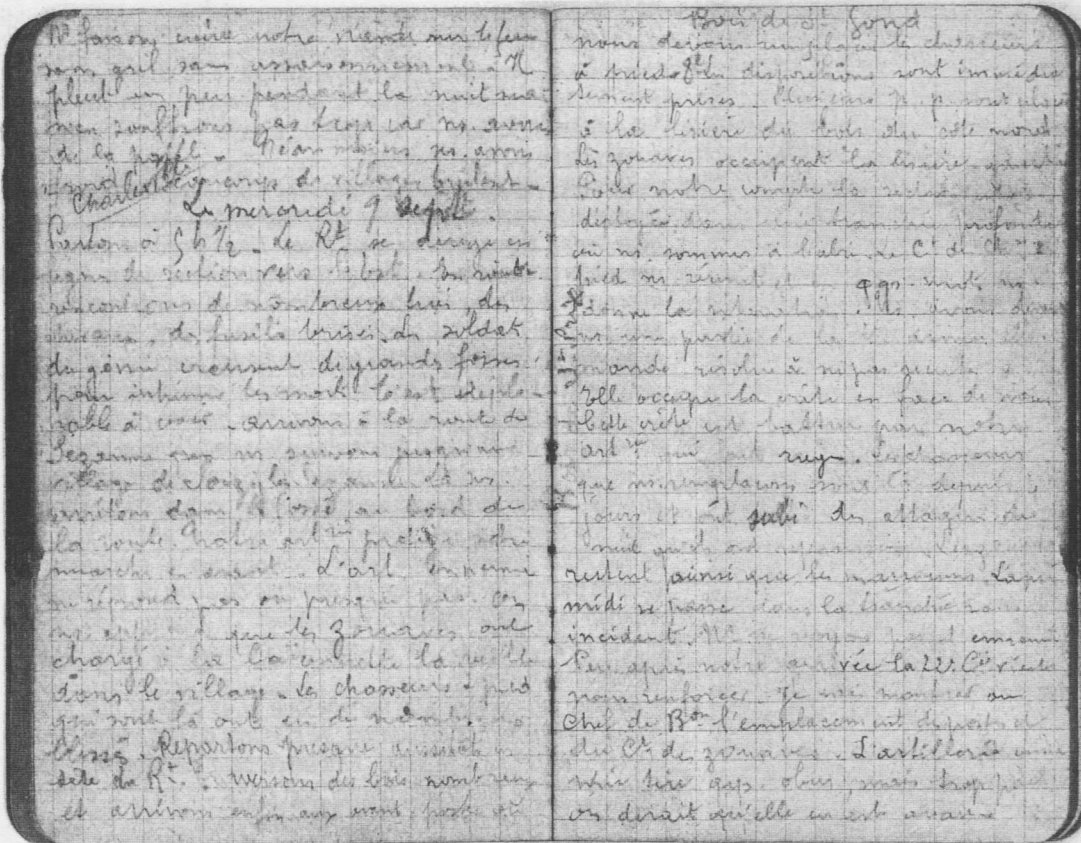 Ns faisons cuire notre viande sur le feu
sans gril, sans assaisonnement. Il
pleut un peu pendant la nuit mais
n'en souffrons pas trop car ns avons
de la paille. Néanmoins ns avons
froid. beaucoup de villages brûlent
Charleville
Le mercredi 9 sept.
Partons à 5h ½. Le Rt se dirige en
ligne de section vers l'est. En route
rencontrons de nombreux tués, des
chevaux, des fusils brisés, des soldats
du génie creusent de grands fosses
pour inhumer les morts. C'est déplo
rable à voir. arrivons à la route de
Sézanne que ns suivons jusqu'au
village de et ns
arrêtons dans le fossé au bord de
la route. Notre artrie protège notre
marche en avant. L'art. ennemie
ne répond pas ou presque pas. On
ns apprend que les zouaves ont
chargé à la baïonnette la veille
dans le village. Les chasseurs à pied
qui sont là ont eu de nombreux
blessés. Repartons presque aussitôt en
tête du Rt. Traversons des bois nombreux
et arrivons enfin aux avant postes où
Bois de St Gond
nous devons remplacer le chasseurs
à pieds. Les dispositions sont immédia
tement prises. Plusieurs p. p. sont placés
à la lisière du bois du côté nord
Les zouaves occupent la lisière gauche
Pour notre compte la section est
déployée dans une tranchée profonde
où ns sommes à l'abri. Le Ct de
pied ns réunit et en qqs mots ns
donne la situation. Ns avons devant
ns une partie de la
résolue à ne pas reculer
Elle occupe la crête en face de nous
Cette crête est battue par notre
artrie Les chasseurs
que ns remplaçons sont là depuis
jours et ont subi des attaques de
nuit qu'ils ont repoussées. Les zouaves
restent ainsi que les marocains. L'après
midi se passe dans la tranchée sans
incident. Ns ne voyons pas d'ennemi
Peu après notre arrivée la 22e Cie vient
nous renforcer. Je vais montrer au
Chef de Bon l'emplacement des postes et
du Ct de zouaves. L'artillerie enne
mie tire qqs obus, mais trop peu
on dirait qu'elle en est avare